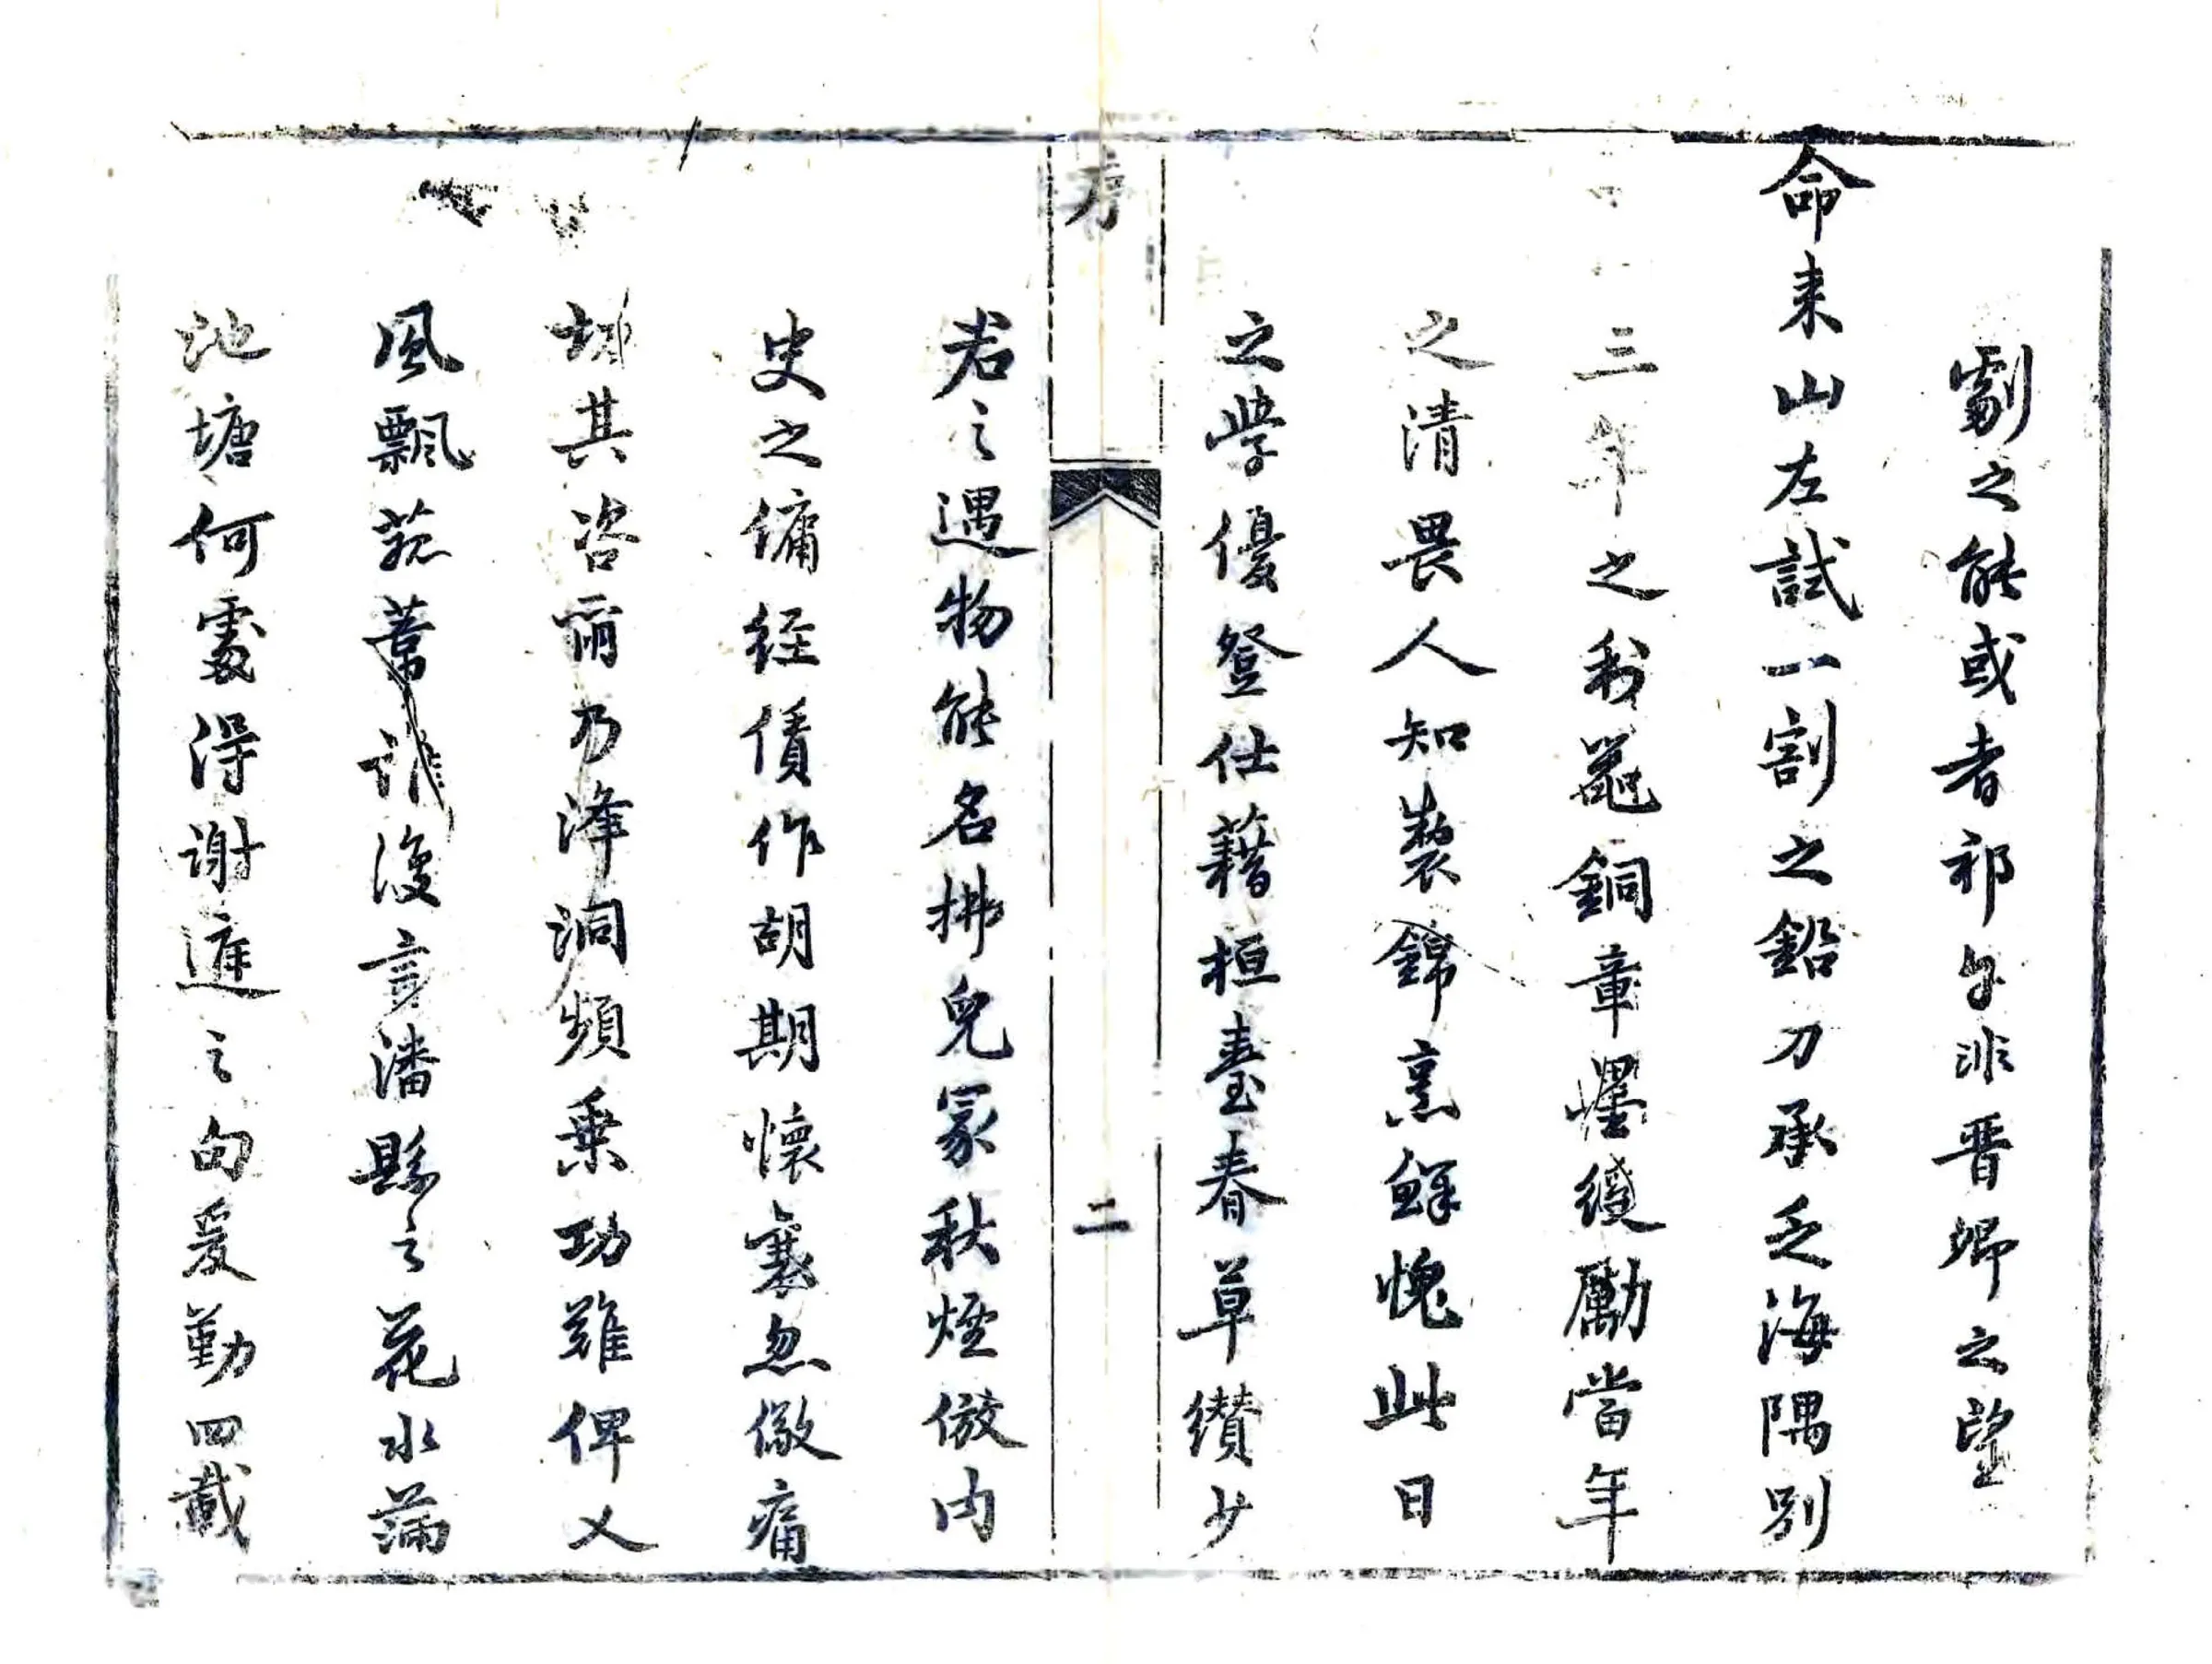 劇之能或者祁午非晋卿之望
命来山左試一割之鉛刀承乏海隅別
三年之利器銅章墨綬勵當年
之清畏人知製錦烹鮮愧此日
之學優登仕藉桓臺春草纘少
序
二
若之遇物能名拂兒冢秋煙倣内
史之傭経債作胡期懷襄忽儆痛
其咨爾乃洚洞頻乗功難俾乂
風飄菰蒂誰復言潘縣之花水滿
池塘何處得謝遊之句爰勤四載